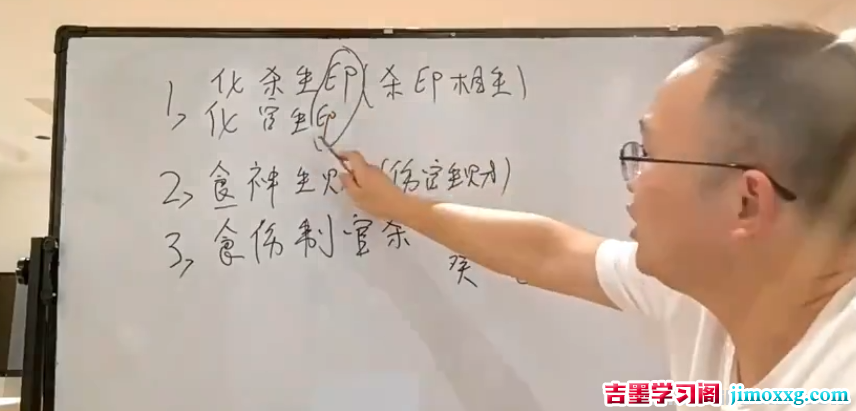 1, 化杀生印(杀印相生)
化官生印
2, 食神生财(伤官生财)
3, 食伤制官杀
癸
吉墨学习阁 jimoxxg.com